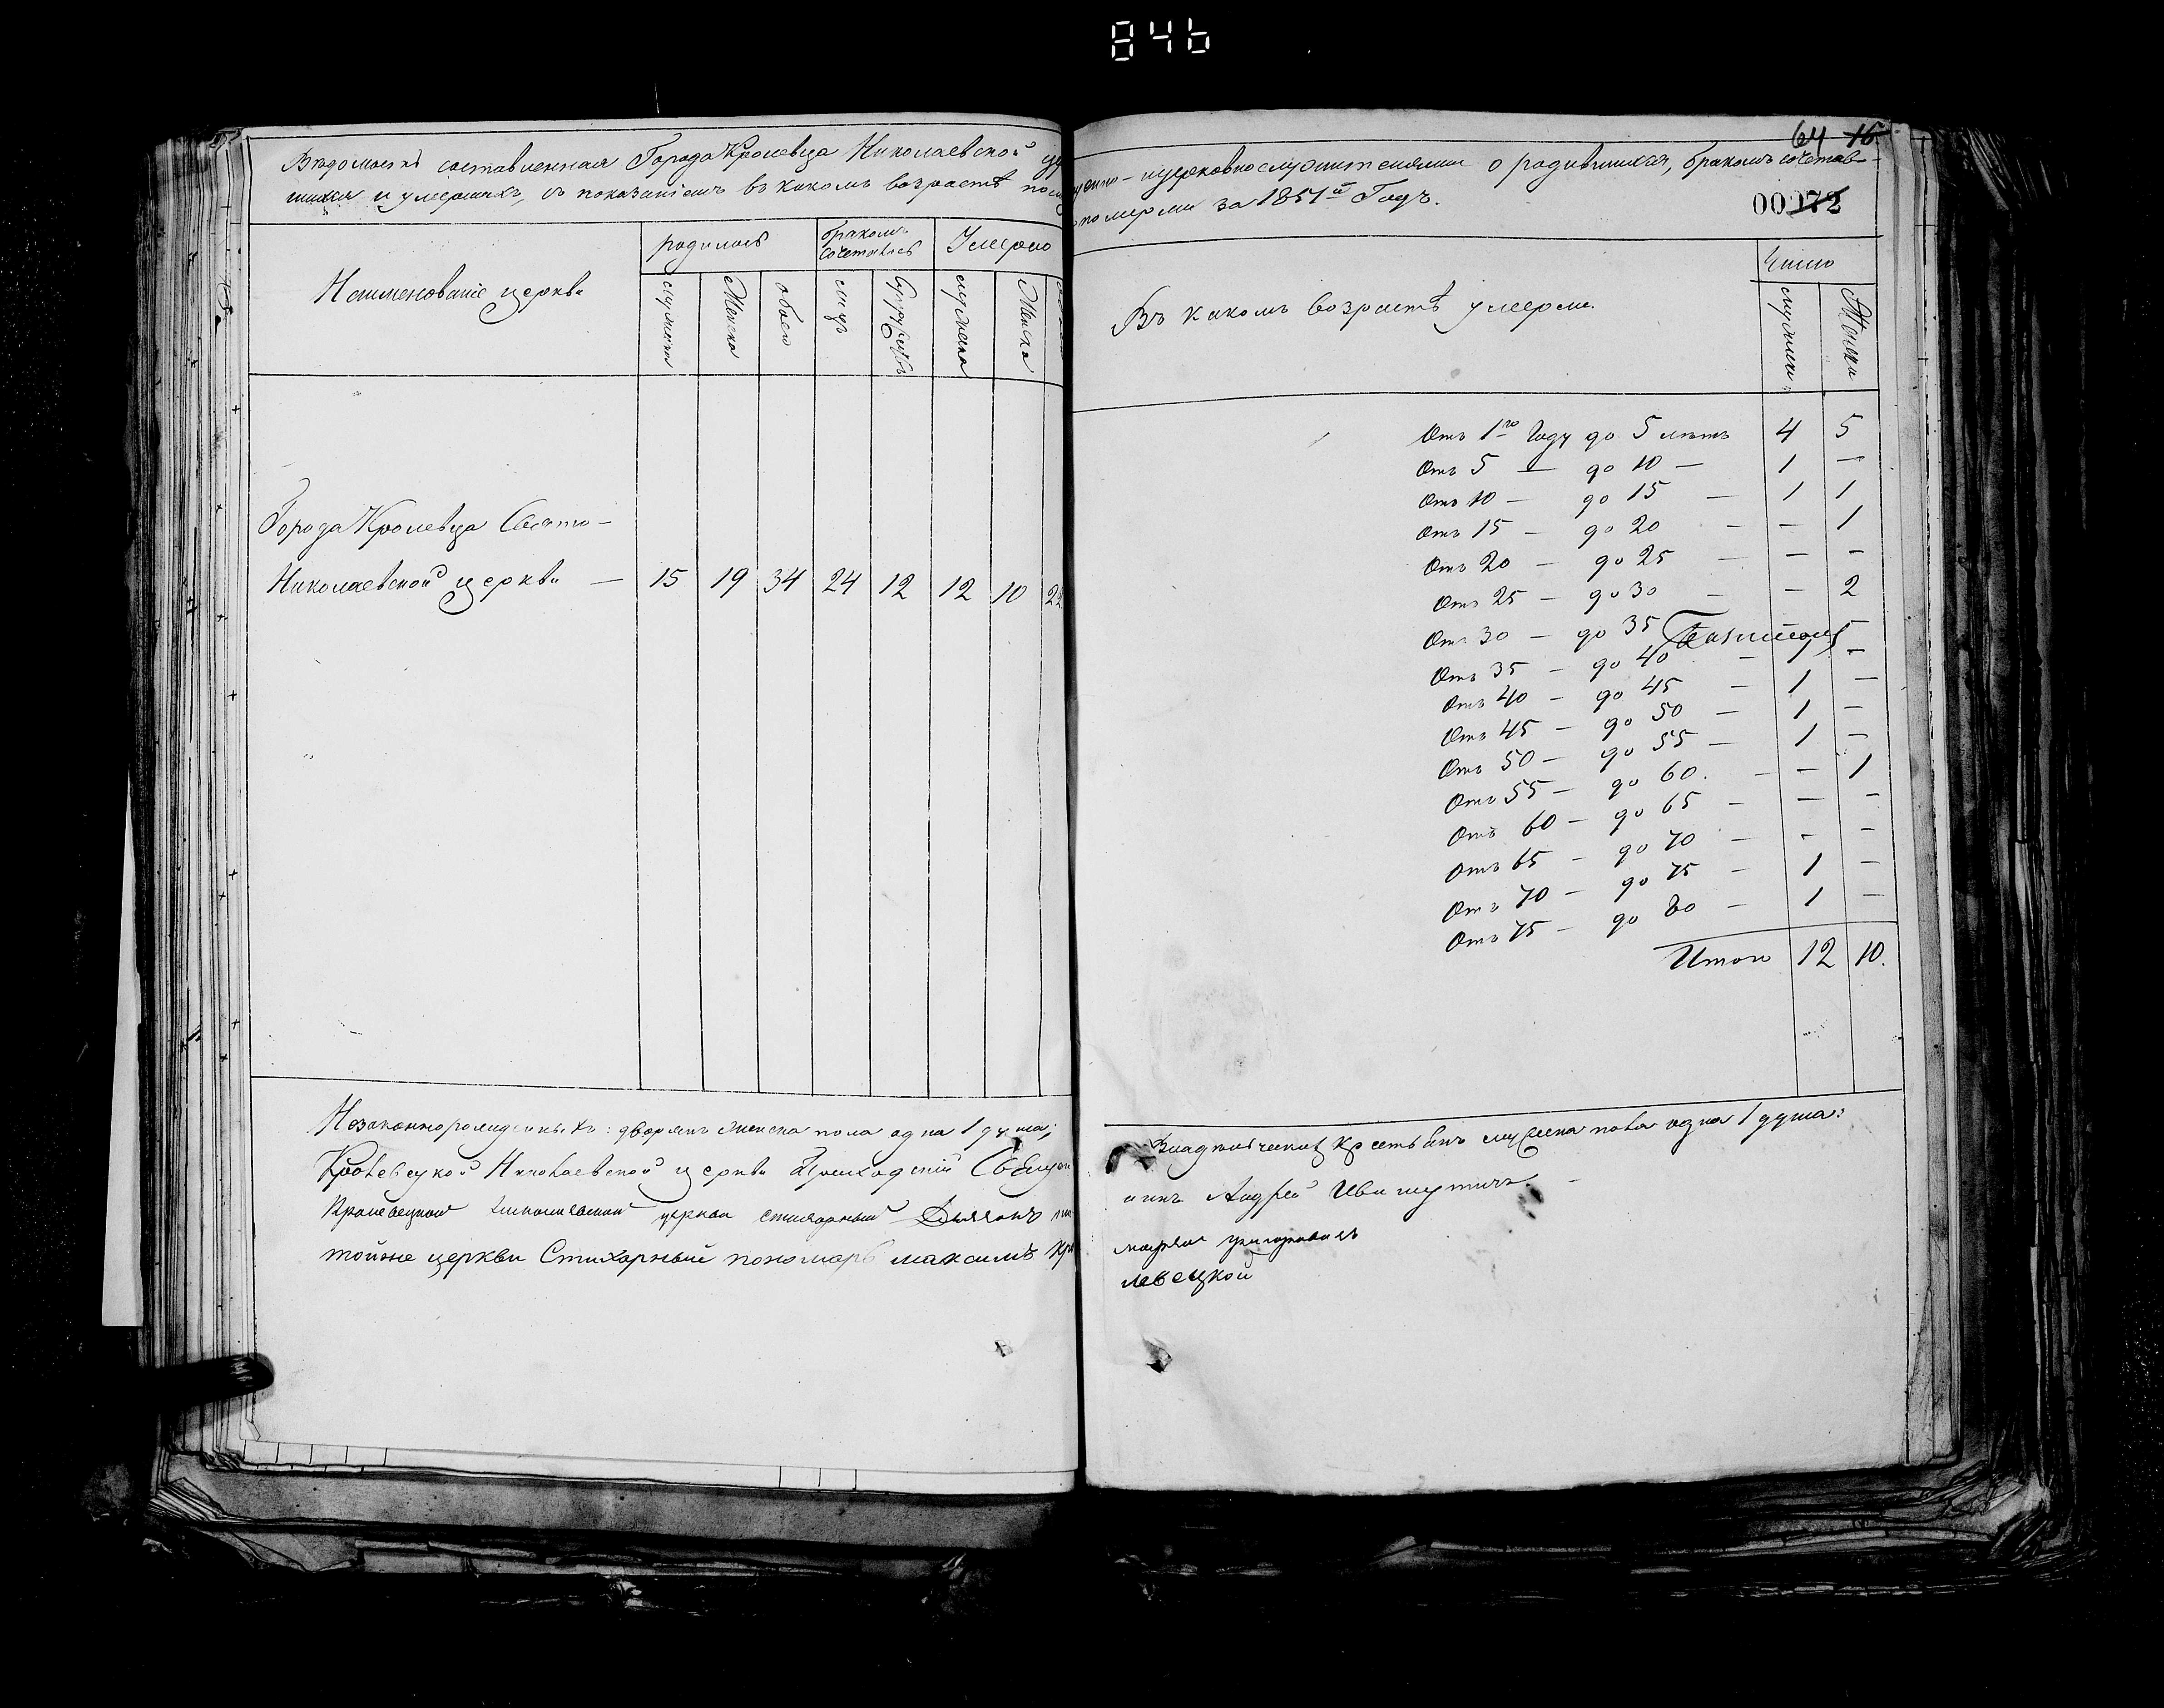 846
64 16
00072
Вѣдомость составленная Города Кролевца Николаевской
щенно-церковнослужителями о родившихся, бракомъ сочетав-
шихся и умершихъ, съ показаніемъ въ какомъ возрастѣ
померли за 1851й Годъ.
Наименованіе церкви
родилось
бракомъ сочеталось
Умерло
мужска
Женска
обоего
лицъ
Супружествъ
мужска
Женска
Города Кролевца Свято-
Николаевской церкви — 15 19 34 24 12 12 10 22
Въ какомъ возрастѣ умерли.
Число
мужеска
Женска
Отъ 1го Году до 5 лѣтъ 4 5
Отъ 5 — до 10 — 1 —
Отъ 10 — до 15 — 1 1
Отъ 15 — до 20 — — 1
Отъ 20 — до 25 — — —
Отъ 25 — до 30 — — 2
Отъ 30 — до 35
Отъ 35 — до 40 — 1 —
Отъ 40 — до 45 — 1 —
Отъ 45 — до 50 — 1 —
Отъ 50 — до 55 — 1 —
Отъ 55 — до 60. — — 1
Отъ 60 — до 65 — — —
Отъ 65 — до 70 — — —
Отъ 70 — до 75 — 1 —
Отъ 75 — до 80 — 1 —
Итого 12 10.
Незаконнорожденныхъ: дворянъ женска пола одна 1 душа;
Владѣльческихъ крестьянъ мужеска пола одна 1 душа:
Кролевецкой Николаевской церкви Приходскій Священ
никъ Андрей
Кролевецкой Николаевской церкви стихарный Дьячокъ
тойже церкви Стихарный пономарь максимъ Кро
левецкой